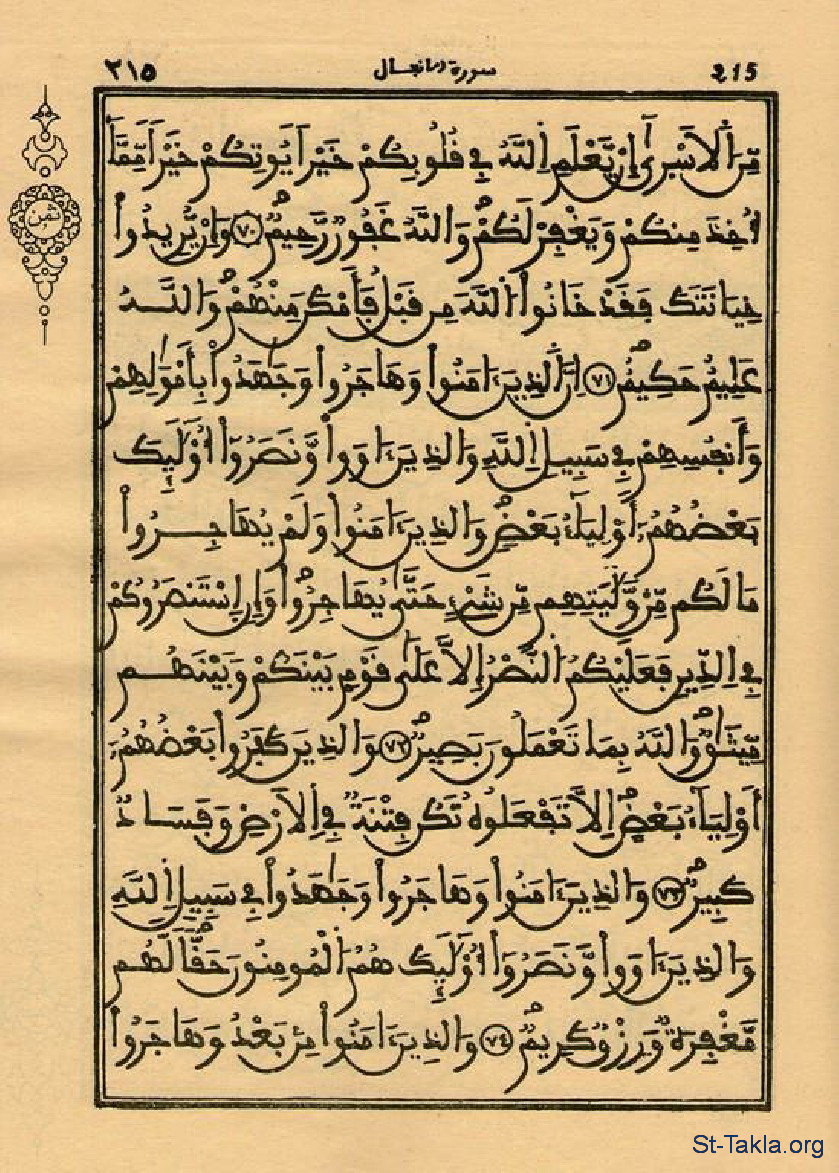 ٢١٥ سورة الانفال 215
ثمن
مِّنَ ٱلَاسْرَىٰٓ إِنْ يَّعْلَمِ ٱللَّهُ فِے قُلُوبِكُمْ خَيْراً يُوتِكُمْ خَيْراً مِّمَّآ
أُخِذَ مِنكُمْ وَيَغْفِرْ لَكُمْ وَاللَّهُ غَفُورٌ رَّحِيمٌ ٧٠ وَإِنْ يُّرِيدُواْ
خِيَانَتَكَ فَقَدْ خَانُواْ اللَّهَ مِن قَبْلُ فَأَمْكَنَ مِنْهُمْ وَاللَّهُ
عَلِيمٌ حَكِيمٌ ٧١ إِنَّ ٱلذِينَ ءَامَنُواْ وَهَاجَرُواْ وَجَٰهَدُواْ بِأَمْوَٰلِهِمْ
وَأَنفُسِهِمْ فِے سَبِيلِ اللَّهِ وَالذِينَ ءَاوَواْ وَّنَصَرُوٓاْ أُوْلَٰٓئِكَ
بَعْضُهُمُۥٓ أَوْلِيَآءُ بَعْضٍ وَالذِينَ ءَامَنُواْ وَلَمْ يُهَاجِرُواْ
مَا لَكُم مِّنْ وَّلَٰيَتِهِم مِّن شَےْءٍ حَتَّىٰ يُهَاجِرُواْ وَإِنِ اِسْتَنصَرُوكُمْ
فِے اِلدِّينِ فَعَلَيْكُمُ اُلنَّصْرُ إِلَّا عَلَىٰ قَوْمٍ بَيْنَكُمْ وَبَيْنَهُم
مِّيثَٰقٌ وَاللَّهُ بِمَا تَعْمَلُونَ بَصِيرٌ ٧٢ وَالذِينَ كَفَرُواْ بَعْضُهُمُۥٓ
أَوْلِيَآءُ بَعْضٍ اِلَّا تَفْعَلُوهُ تَكُن فِتْنَةٌ فِے اِلَارْضِ وَفَسَادٌ
كَبِيرٌ ٧٣ وَالذِينَ ءَامَنُواْ وَهَاجَرُواْ وَجَٰهَدُواْ فِے سَبِيلِ اِللَّهِ
وَالذِينَ ءَاوَواْ وَّنَصَرُوٓاْ أُوْلَٰٓئِكَ هُمُ اُلْمُومِنُونَ حَقّاً لَّهُم
مَّغْفِرَةٌ وَرِزْقٌ كَرِيمٌ ٧٤ وَالذِينَ ءَامَنُواْ مِنۢ بَعْدُ وَهَاجَرُواْ
St-Takla.org